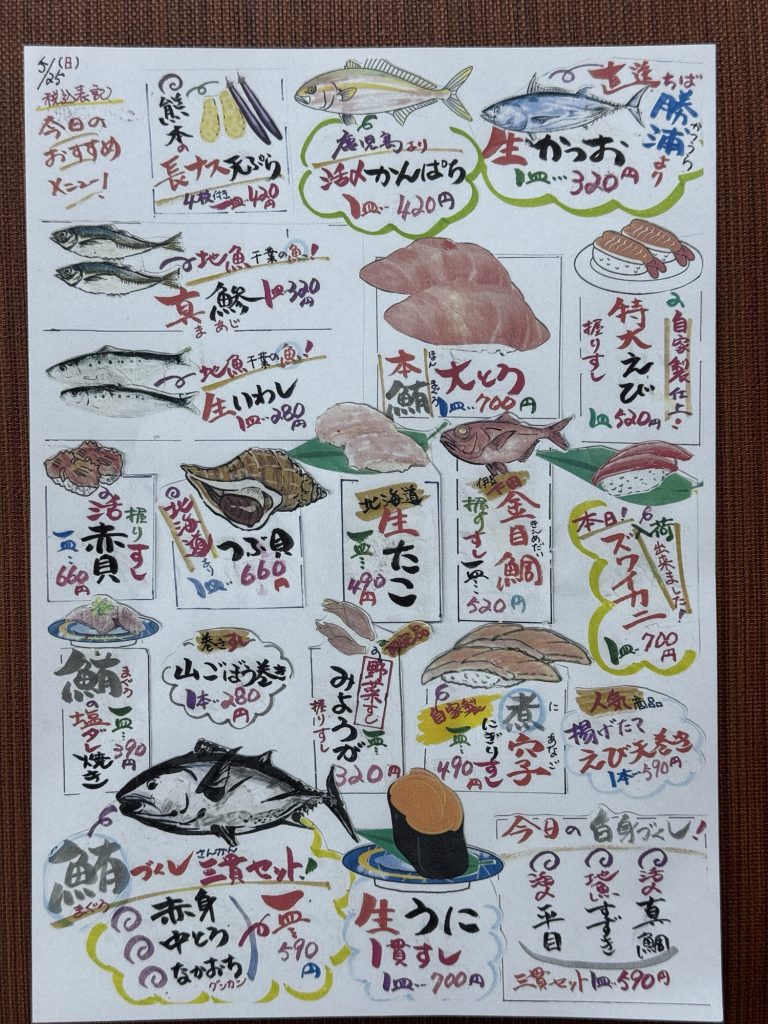 5/25(日)
税込表記
今日の
おすすめ
メニュー!
熊本の
長ナス天ぷら
4枚付き 一皿…420円
鹿児島より
活〆かんぱち
1皿…420円
直送ちば
勝浦より
かつうら
生かつお
1皿…320円
地魚 千葉の魚!
真鯵 1皿320円
まあじ
地魚 千葉の魚!
生いわし
1皿…280円
本鮪
ほんまぐろ
大とろ
1皿…700円
自家製仕上!
特大えび
握りすし
1皿520円
活赤貝
握りすし
一皿…660円
北海道より
つぶ貝
1皿…660円
北海道
生たこ
一皿…490円
伊豆
金目鯛
きんめだい
握りすし 一皿…520円
本日!入荷出来ました!
ズワイカニ
1皿…700円
鮪の塩ダレ焼き
まぐろ
一皿…390円
巻きすし
山ごぼう巻き
1本…280円
野菜すし
みょうが
握りすし
一皿…320円
自家製
煮穴子
にあなご
にぎりすし
一皿…490円
人気商品
揚げたて
えび天巻き
1本…590円
鮪づくし三貫セット!
まぐろ
さんかん
赤身
中とろ
なかおち
グンカン
一皿…590円
生うに
1貫すし
1皿…700円
今日の白身づくし!
活〆真鯛
地魚すずき
活〆平目
三貫セット1皿…590円